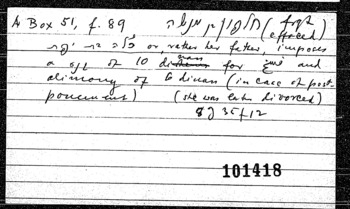 A Box 51, f. 89 חלפון בן מנשה (first effaced)
כלה בת or, rather her father, imposes
a of 10 dinars for and
alimony of 6 dinars (in case of post-
ponement) (she was later divorced)
8 J 35 f 12
101418